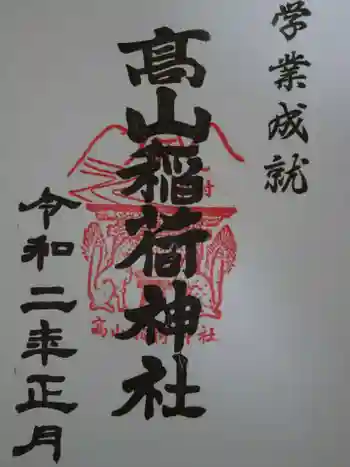 学業成就
髙山稲荷神社
令和二年正月
髙山稲荷神社